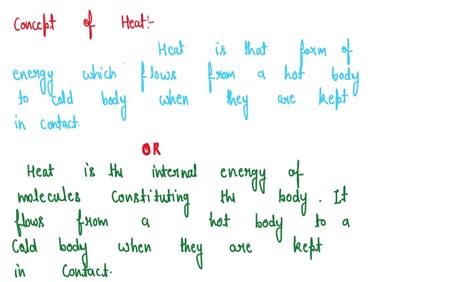 Concept of Heat:-
Heat is that form of
energy which flows from a hot body
to cold body when they are kept
in contact.
OR
Heat is the internal energy of
molecules constituting the body. It
flows from a hot body to a
cold body when they are kept
in contact.